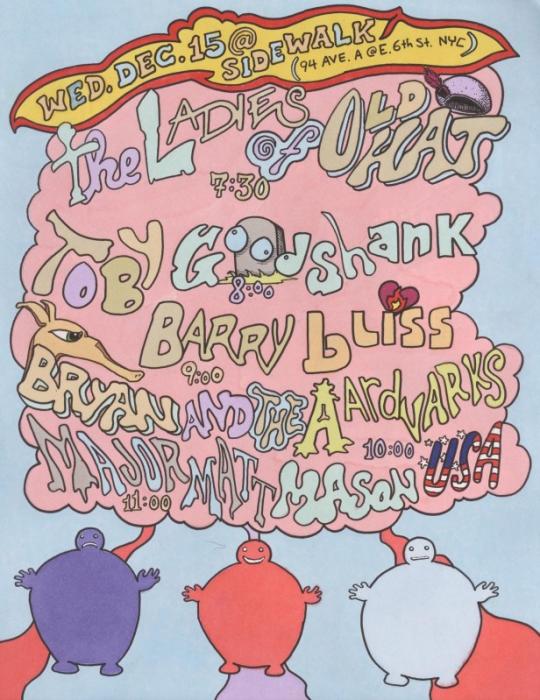 WED. DEC. 15 @ SIDEWALK
(94 AVE. A @ E. 6th St. NYC)
the LADIES of OLD HAT
7:30
TOBY Goodshank
8:00
BARRY bLiss
9:00
BRYAN AND THE AArdvARKS
10:00
MAJOR MATT MASON USA
11:00